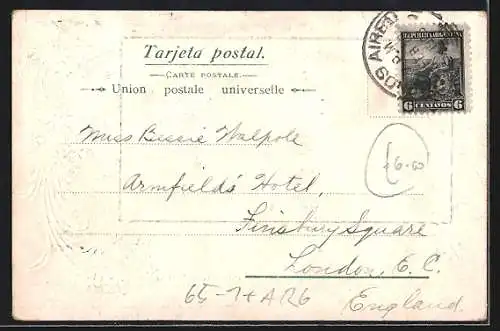 Tarjeta postal.
CARTE POSTALE.
Union postale universelle
REPUBLICA ARGENTINA
6 CENTAVOS 6
OS AIRES
Miss Bessie Walpole
Armfield's Hotel,
Finsbury Square
London, E. C.
England.
65-7+AR6